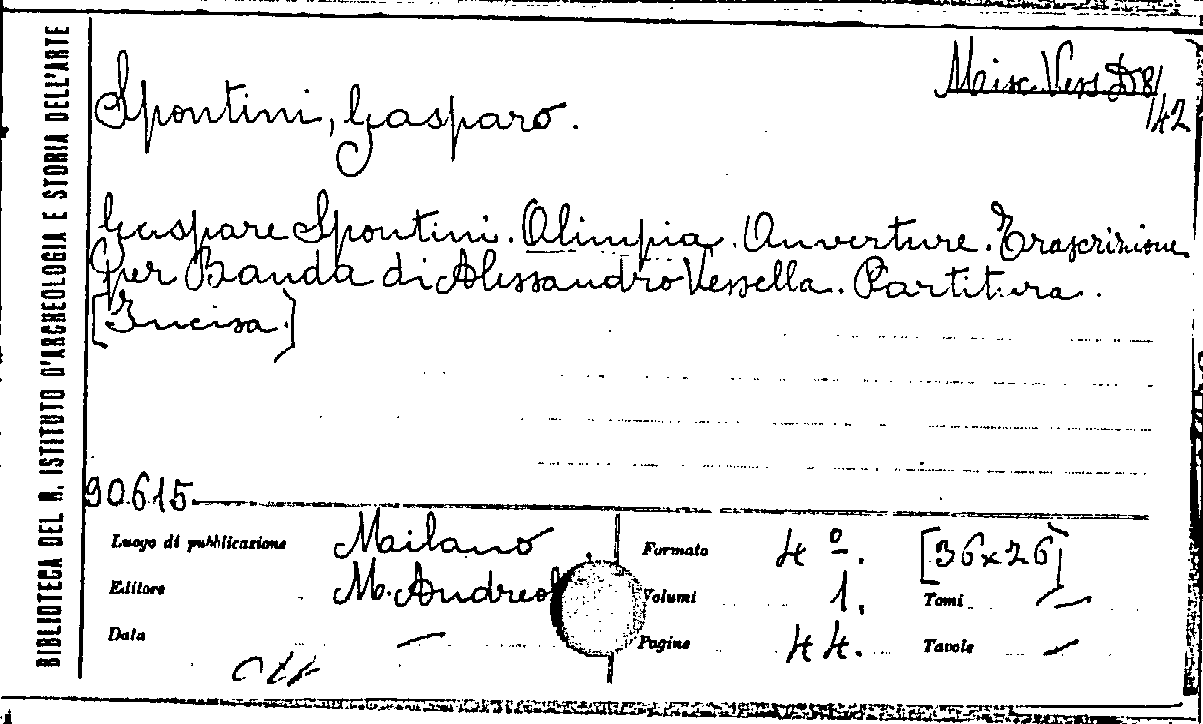 BIBLIOTECA DEL R. ISTITUTO D'ARCHEOLOGIA E STORIA DELL'ARTE
Misc. Vess. D 8/
/42
Spontini, Gasparo.
Gaspare Spontini. Olimpia. Ouverture. Trascrizione
per Banda di Alessandro Vessella. Partitura.
[Incisa.]
90615
Luogo di pubblicazione Mailano Formato 4º. [36x26]
Editore M. Andreol Volumi 1. Tomi —
Data — Pagine 44. Tavole —